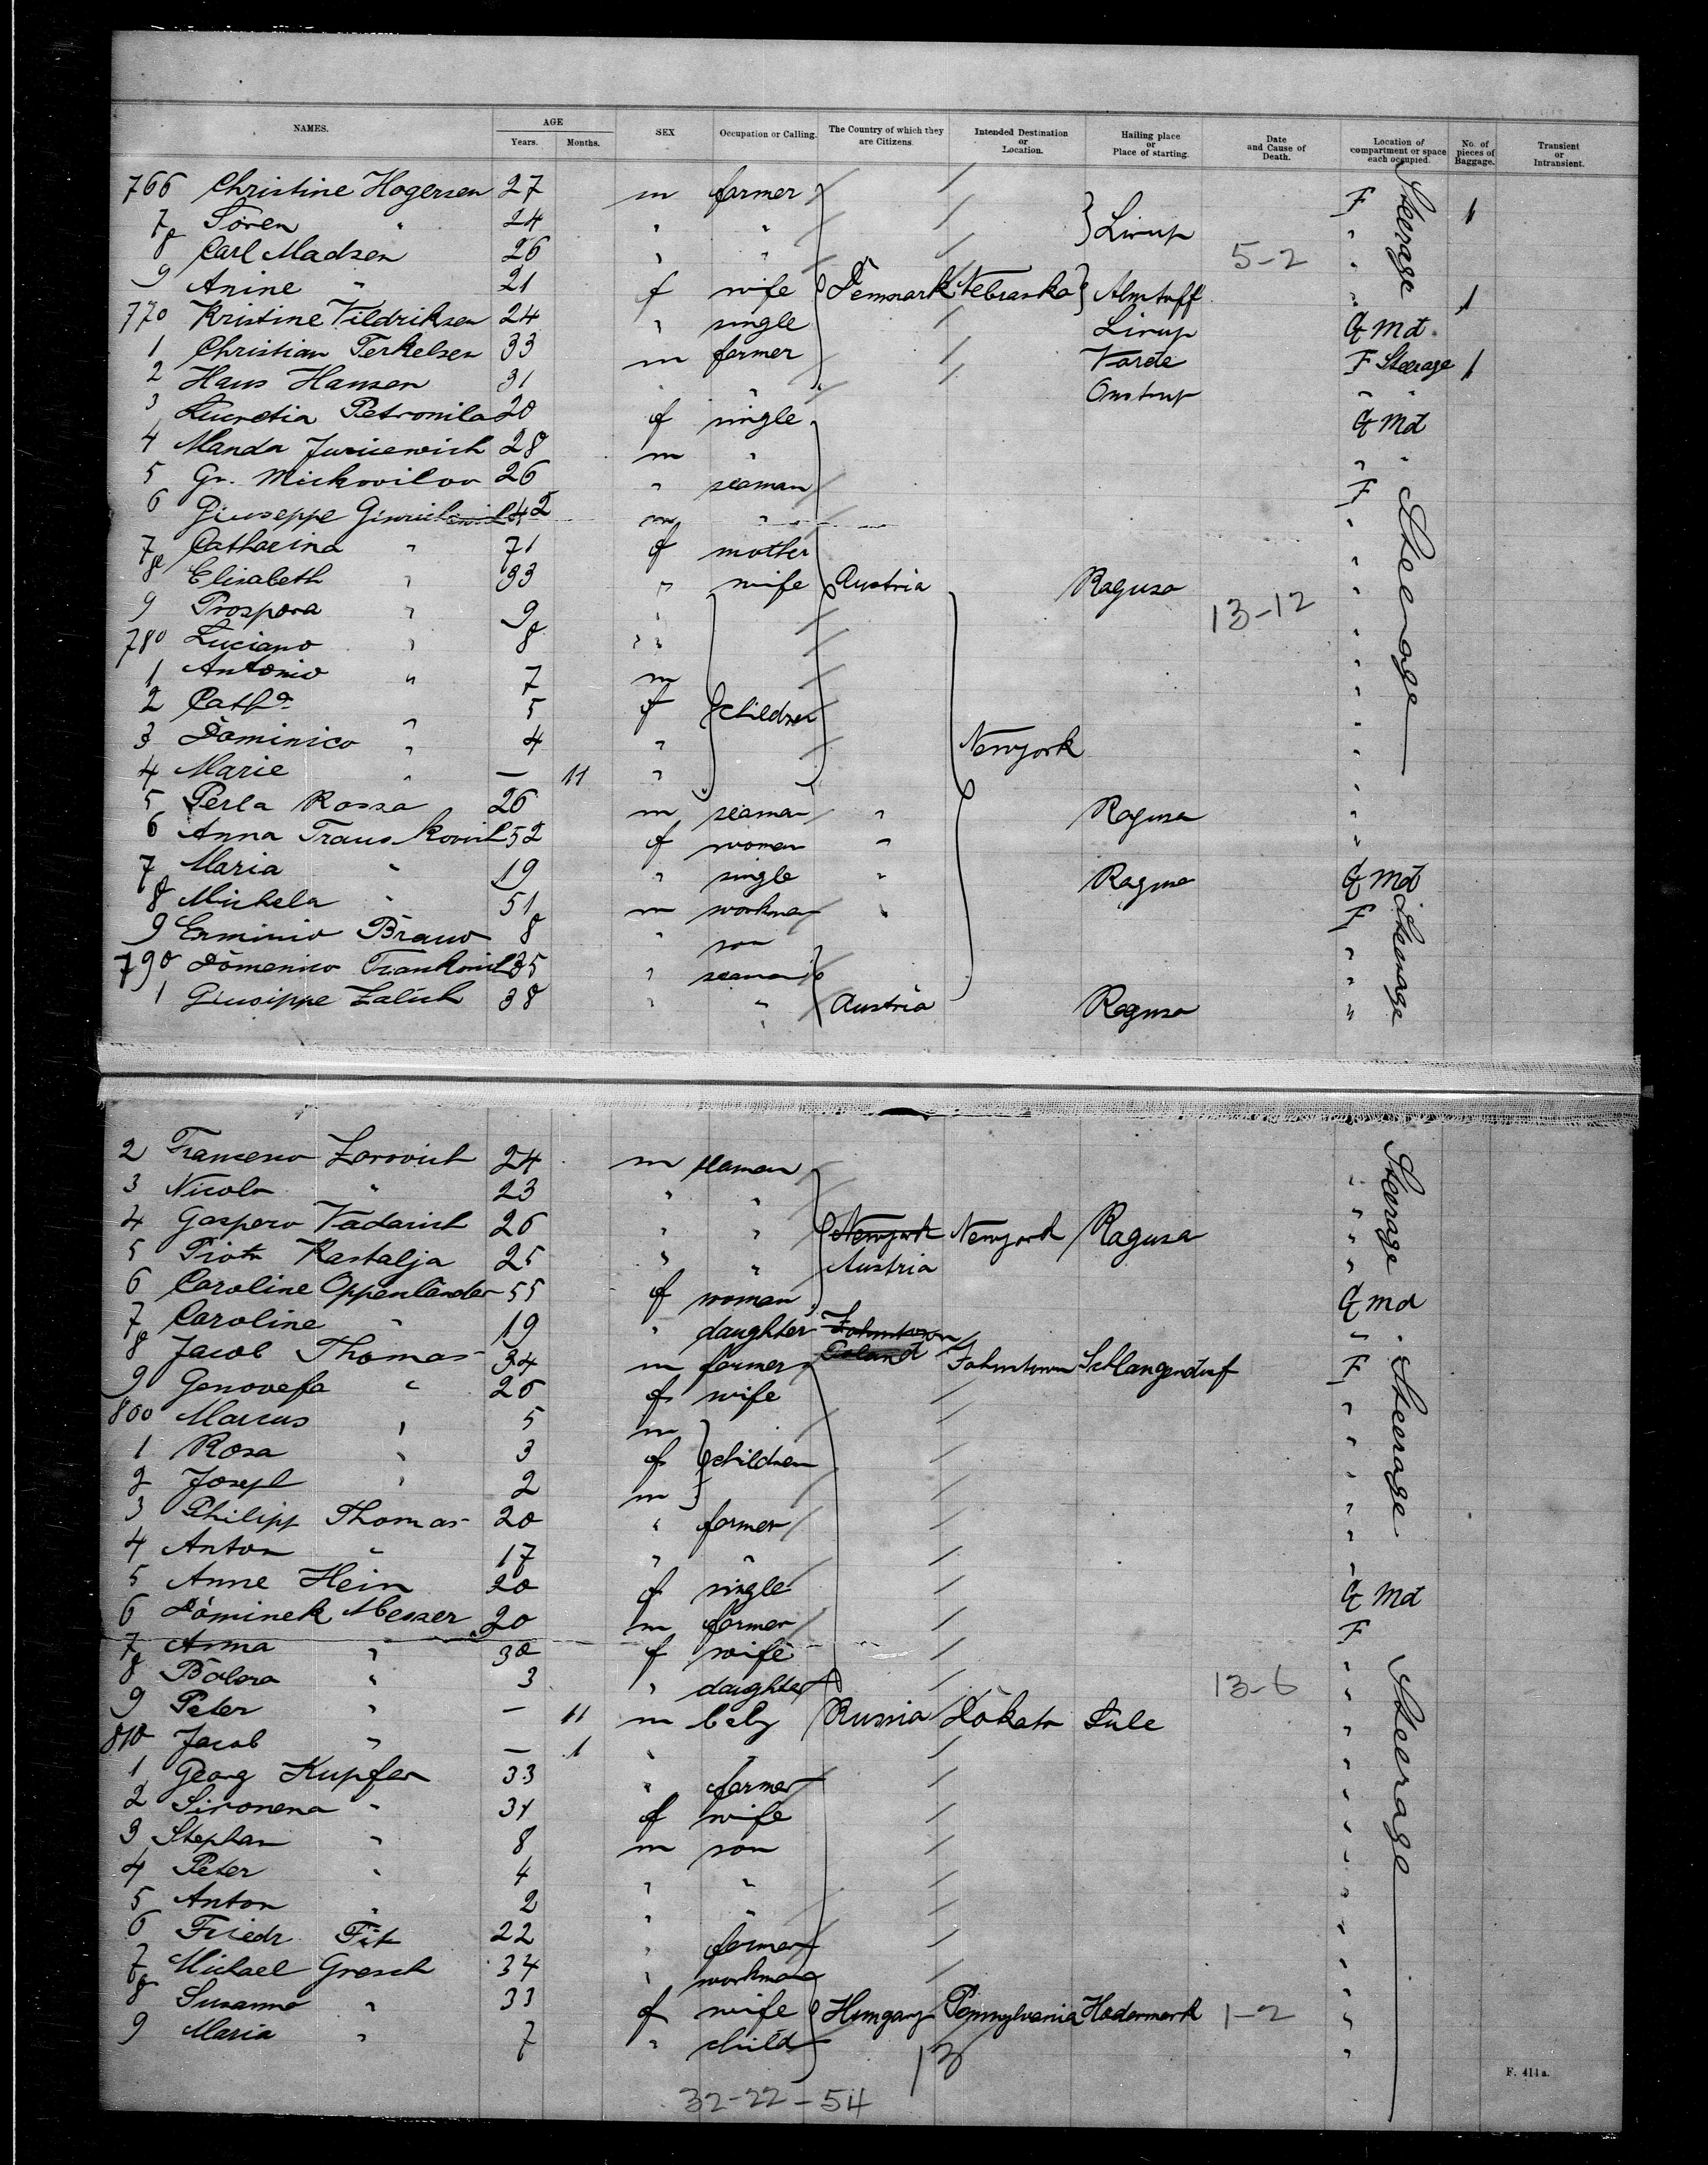 NAMES. AGE Years. Months. SEX Occupation or Calling. The Country of which they are Citizens. Intended Destination or Location. Hailing place or Place of starting. Date and Cause of Death. Location of compartment or space each occupied. No. of pieces of Baggage. Transient or Intransient.
766 Christine Hogersen 27 m farmer / F Steerage 1
7 Sören " 24 " " } Lirup "
8 Carl Madsen 26 " " 5-2 "
9 Anine " 21 f wife Denmark Nebraska } " 1
770 Kristine Vildriksen 24 " single Lirup G Md
1 Christian Terkelsen 33 m farmer Varde F Steerage 1
2 Hans Hansen 31 " " " "
3 Lucretia Petronila 20 f single G Md
4 Manda 28 m " " "
5 Gr. 26 " seaman F Steerage
6 Giuseppe 42 m " "
7 Catharina " 71 f mother "
8 Elisabeth " 33 " wife Austria Ragusa "
9 Prospera " 9 " 13-12 "
780 Luciano " 8 " " "
1 Antonio " 7 m "
2 Cathª 5 f children "
3 Dominico " 4 " Newyork "
4 Marie " — 11 "
5 Perla Rossa 26 m seaman " Ragusa "
6 Anna 52 f woman " "
7 Maria " 19 " single " Ragusa G Md
8 Michela " 51 m workman " F Steerage
9 Erminio 8 " son "
790 Domenico 35 " seaman "
1 Giusippe Zalich 38 " " Austria Ragusa "
2 Francesco Zorovich 24 m seaman Steerage
3 Nicolo " 23 " " "
4 Gaspero Vadarich 26 " " Newyork Newyork Ragusa "
5 Piotr Rastalja 25 " " Austria "
6 Caroline Oppenländer 55 f woman G Md
7 Caroline " 19 " daughter Johntown " "
8 Jacob Thomas 34 m farmer Johntown Schlangendorf F Steerage
9 Genovefa " 26 f wife "
800 Marcus " 5 m "
1 Rosa " 3 f children "
2 Joseph " 2 m "
3 Philipp Thomas 20 " farmer "
4 Anton " 17 " " "
5 Anne Hein 20 f single G Md
6 Dominek Messer 20 m farmer F
7 Anna " 30 f wife "
8 " 3 " daughter 13-6 " Steerage
9 Peter " — 11 m baby Russia Dakota "
810 Jacob " — 1 " "
1 Georg Kupfer 33 " farmer "
2 " 31 f wife "
3 Stephan " 8 m son "
4 Peter " 4 " " "
5 Anton " 2 " " "
6 Friedr. 22 " farmer "
7 Michael Gresch 34 " workman "
8 Susanna " 33 f wife Hungary Pennsylvania Hodermark 1-2 "
9 Maria " 7 " child "
13
32-22-54
F. 411a.